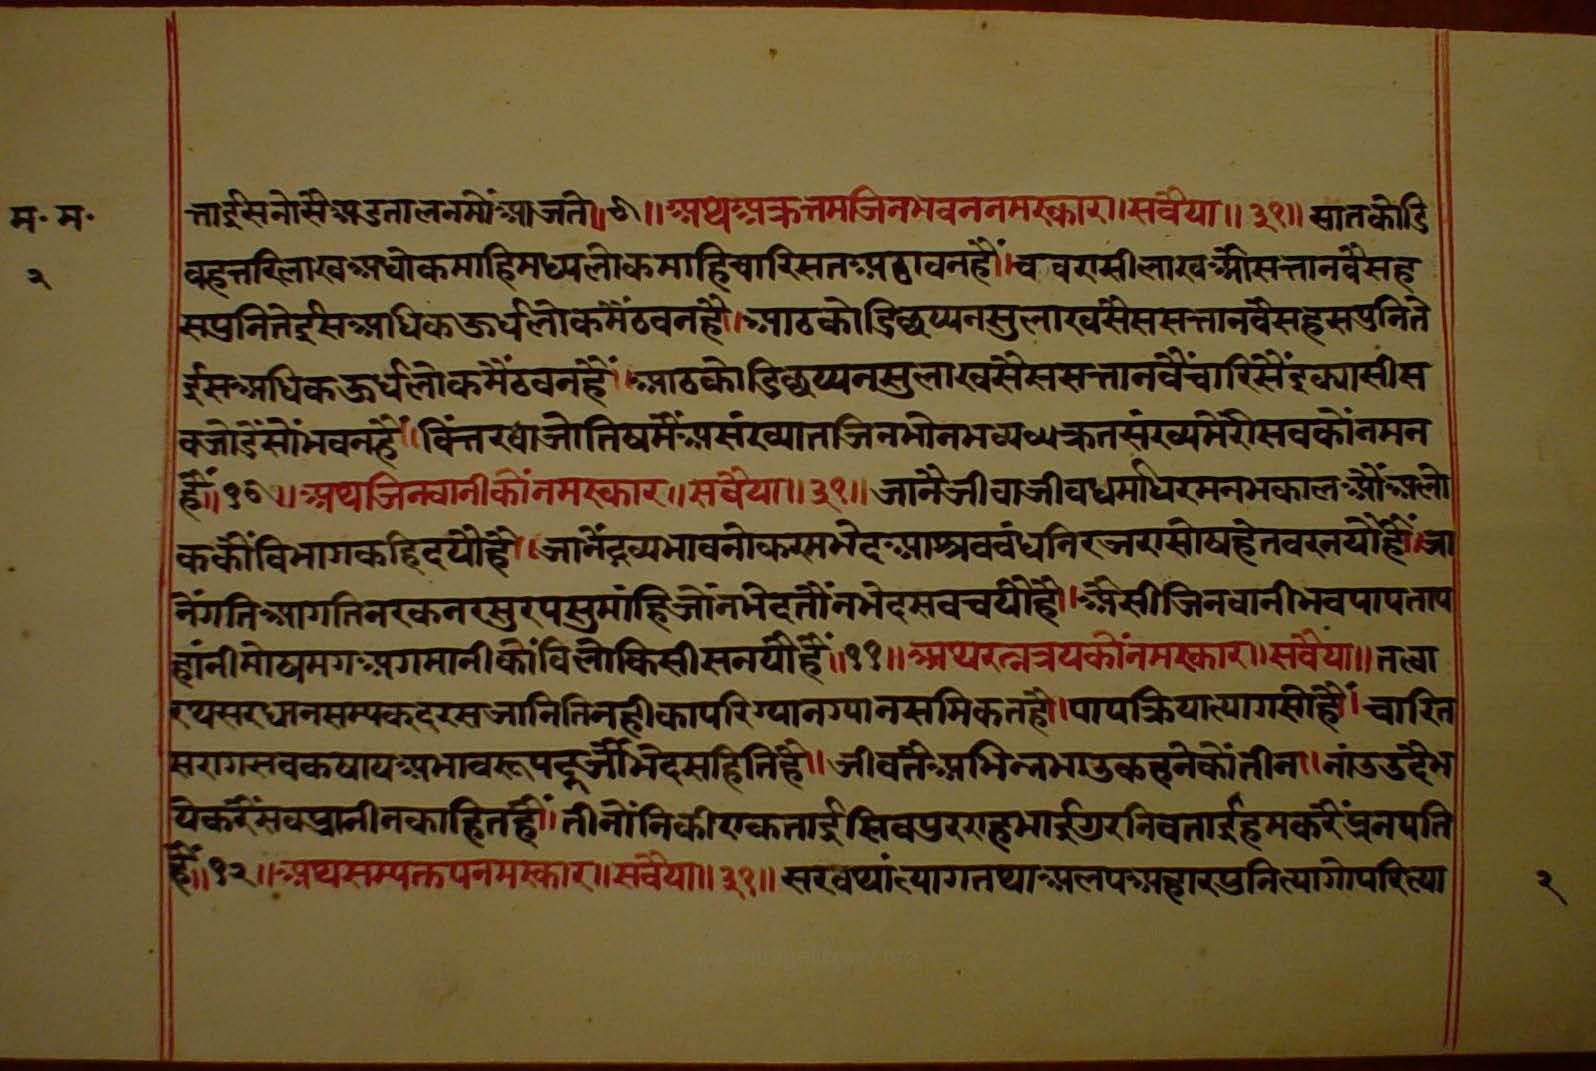 म॰ म॰
२
त्ताईसनोसैअडतालनमोंआजते॥ ९ ॥ अथअक्रत्तमजिनभवननमस्कार॥ सवैया॥ ३१॥ सातकोडि
वहत्तरिलाखअधोकमाहिमध्यलोकमाहिचारिसतअठावनहैं। चवरासीलाखऔसत्तानवैसह
सपुनितेईसआधिकऊर्धलोकमैंठवनहै। आठकोडिछप्पनसुलाखसैससत्तानवैसहसपुनिते
ईसअधिकऊर्धलोकमैंठवनहैं। आठकोडिछप्पनसुलाखसैससत्तानवैंचारिसैंइक्यासीस
वजोडेंसोंभवनहैं। विंतरवाजोतिषमैंअसंख्यातजिनभोनभव्यध्यक्रतसंख्यमेरीसवकोंनमन
हैं॥ १० ॥ अथजिनवानीकोंनमस्कार॥ सवैया॥ ३१॥ जानैजीवाजीवधर्माधरमनभकालऔंअलो
ककोंविभागकहिदयौहै। जानैंद्रव्यभावनोकरमभेदआश्रववंधनिरजरासोषहेतवरनयौहैं। जा
नैंगतिआगतिनरकनरसुरपसुमांहिजोंनभेदतौंनभेदसवचयौहै। ऐसीजिनवानीभवपापताप
हांनीमोष्यमगअगमानीकोंविलोकिसीसनयौहैं॥ ११॥ अथरत्नत्रयकोंनमस्कार॥ सवैया॥ तत्वा
रथसरधानसम्पकदरसजानितिनहीकापरिग्यानग्यानसमिकतहै। पापक्रियात्यागसोहैं। चारित
सरागसवकषायअभावरूपदूजौभेदसहितिहै॥ जीवतैअभिन्नभाउकहनेकोंतीन। नांउउदैभ
येकरैंसवप्रानीनकाहितहैं। तीनोंनिकीएकताईसिवपुरराहभाईगुरनिवताईहमकरैंप्रनपति
हैं॥ १२॥ अथसम्पक्तपनमस्कार॥ सवैया॥ ३१॥ सरवथांत्यागतथाअलपअहारपुनित्यागोपरित्या
२